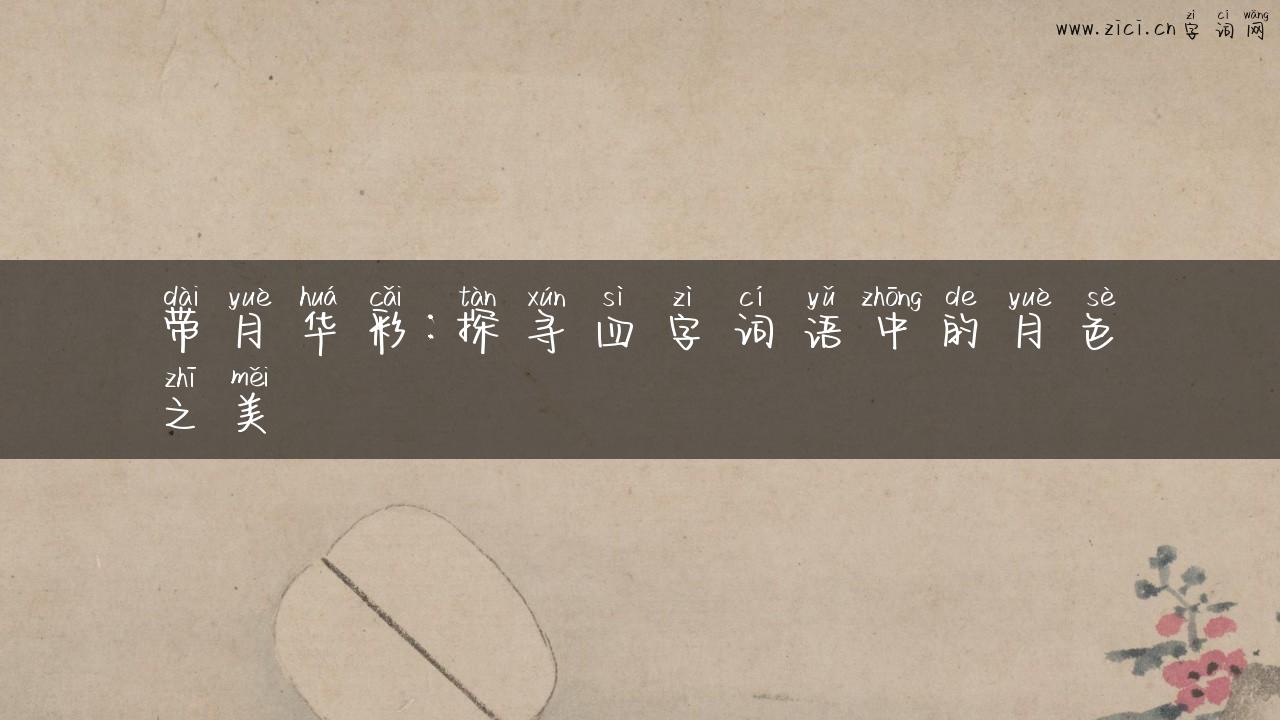 zì cí wǎng
www.zici.cn 字词网
dài yuè huá cǎi tàn xún sì zì cí yǔ zhōng de yuè sè
带月华彩:探寻四字词语中的月色
zhī měi
之美